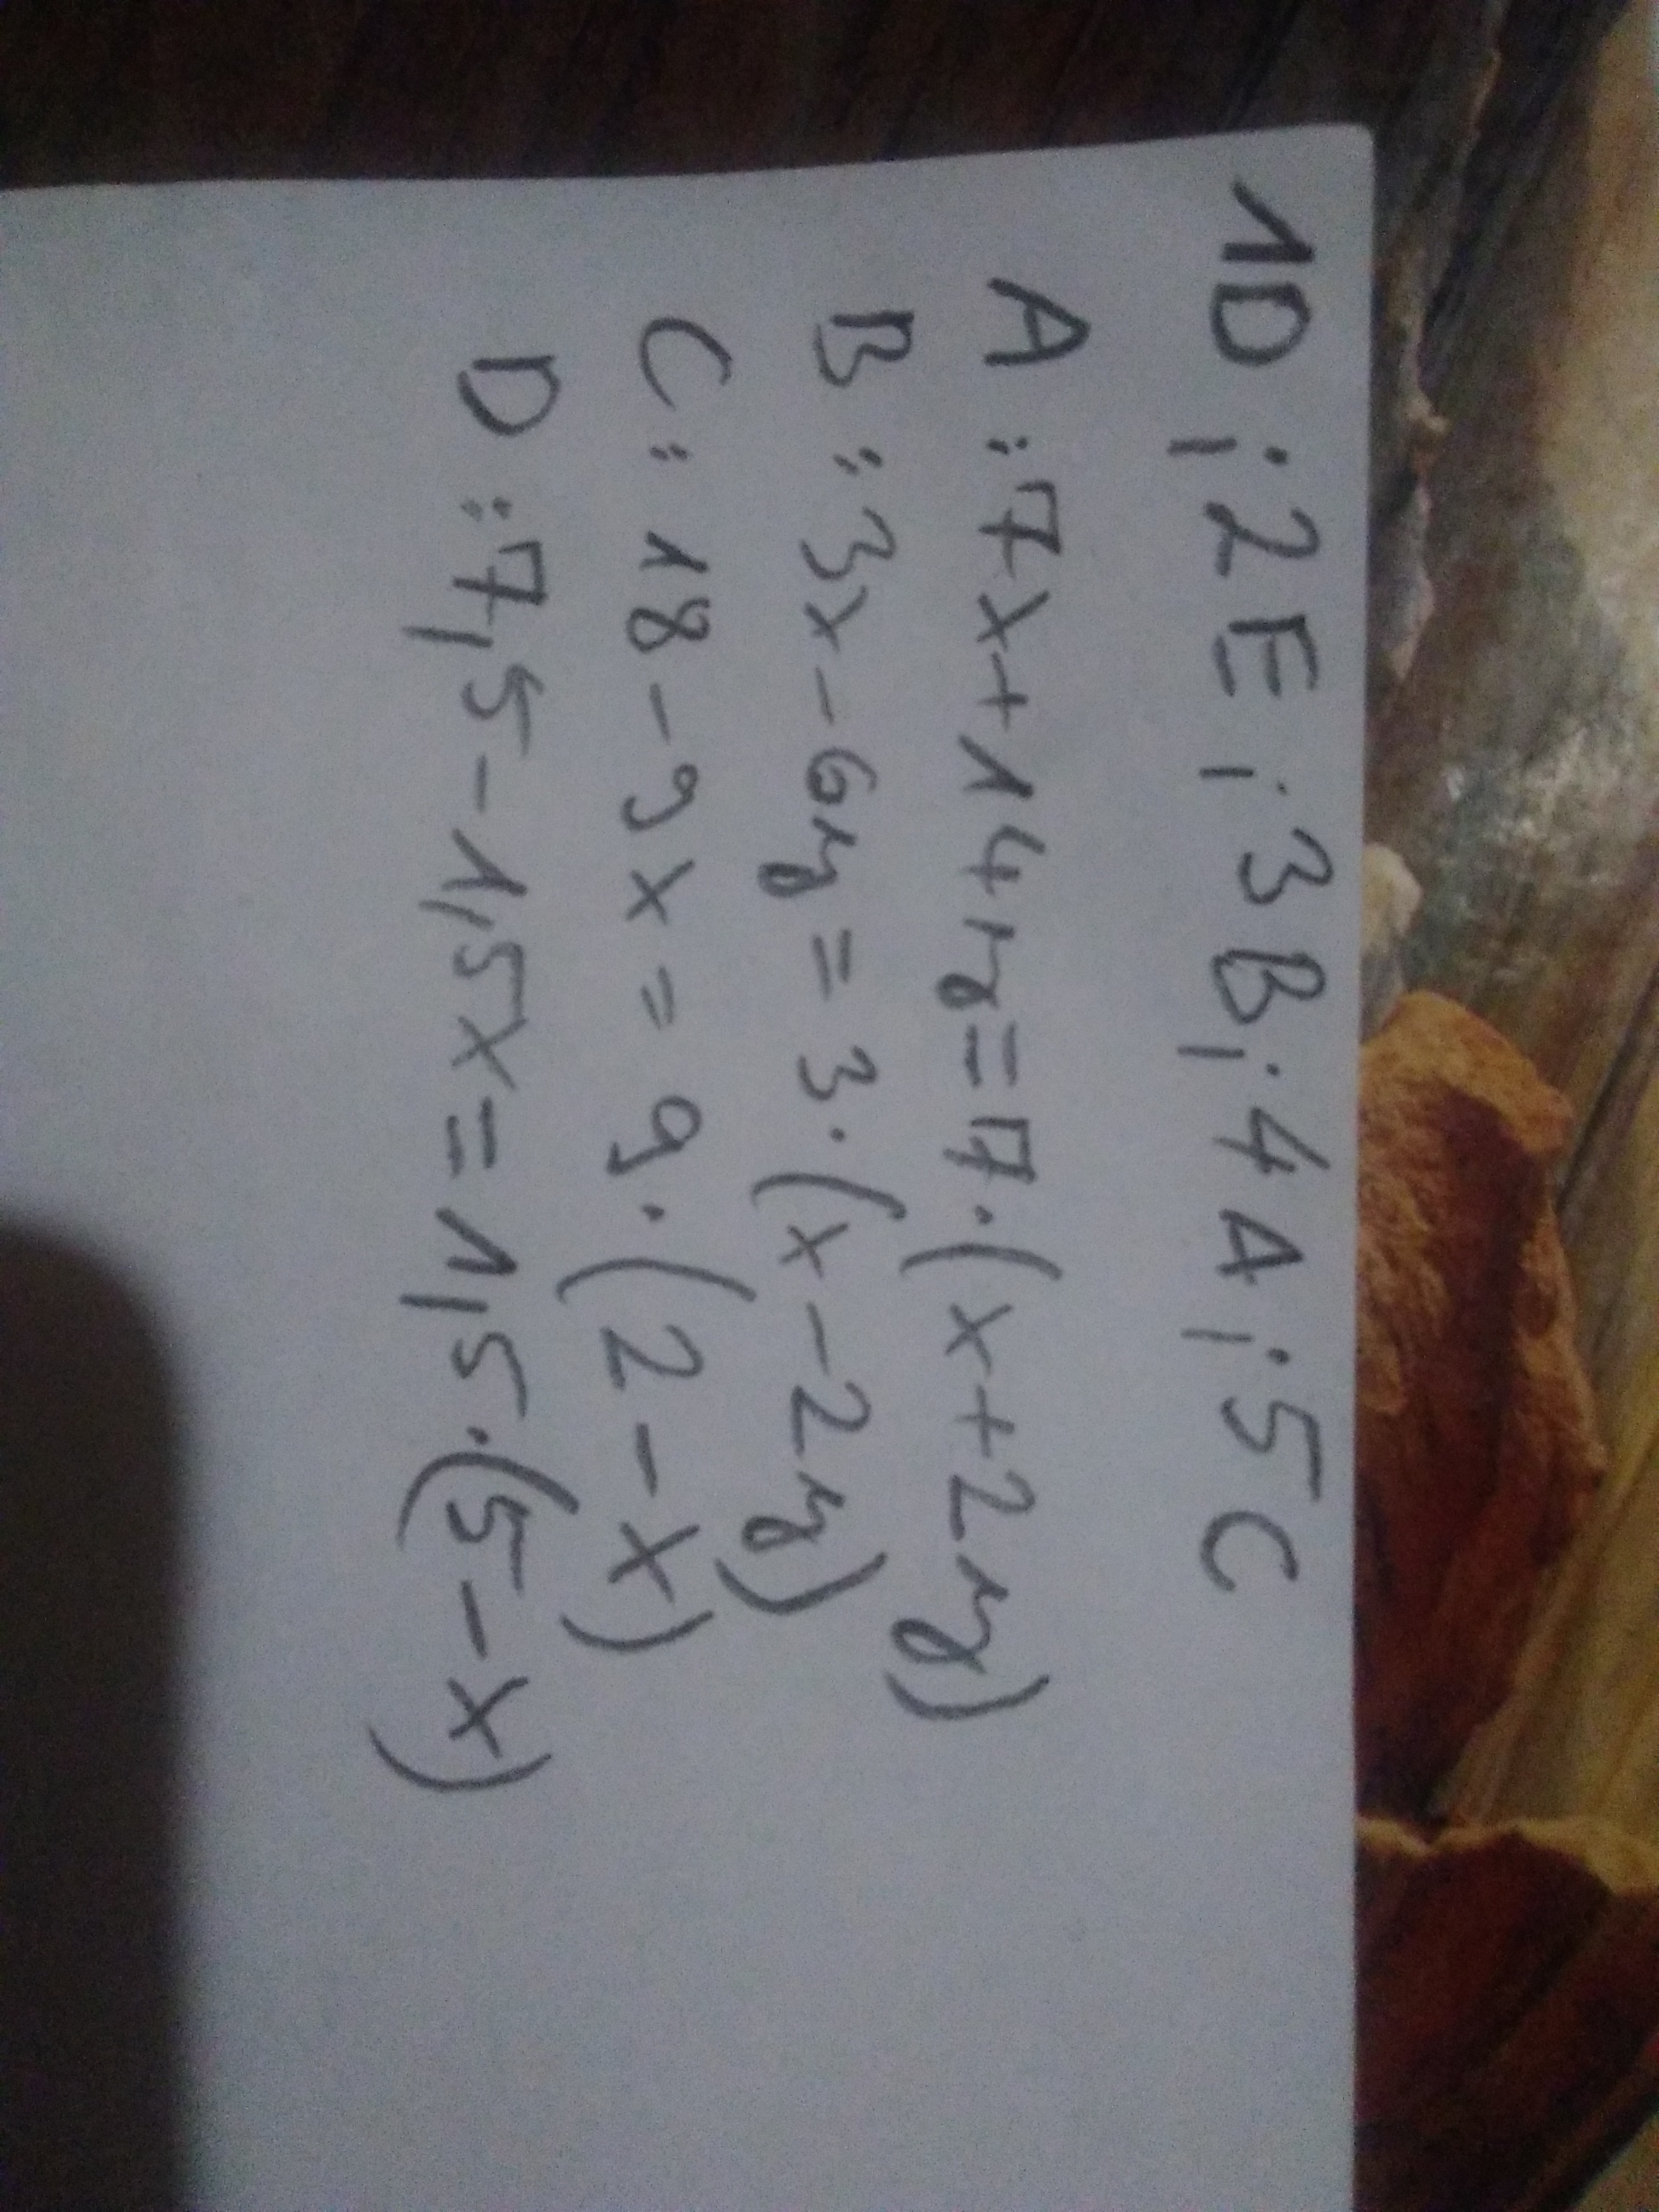 1D ; 2E ; 3B ; 4A ; 5C
A : 7x + 14y = 7 · (x + 2y)
B : 3x - 6y = 3 · (x - 2y)
C : 18 - 9x = 9 · (2 - x)
D : 7,5 - 1,5x = 1,5 · (5 - x)